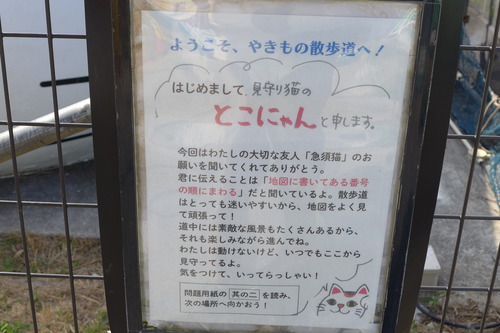 ようこそ、やきもの散歩道へ！
はじめまして、見守り猫の
とこにゃんと申します。
今回はわたしの大切な友人「急須猫」のお
願いを聞いてくれてありがとう。
君に伝えることは「地図に書いてある番号
の順にまわる」だと聞いているよ。散歩道
はとっても迷いやすいから、地図をよく見
て頑張って！
道中には素敵な風景もたくさんあるから、
それも楽しみながら進んでね。
わたしは動けないけど、いつでもここから
見守ってるよ。
気をつけて、いってらっしゃい！
問題用紙の 其の二 を読み、
次の場所へ向かおう！